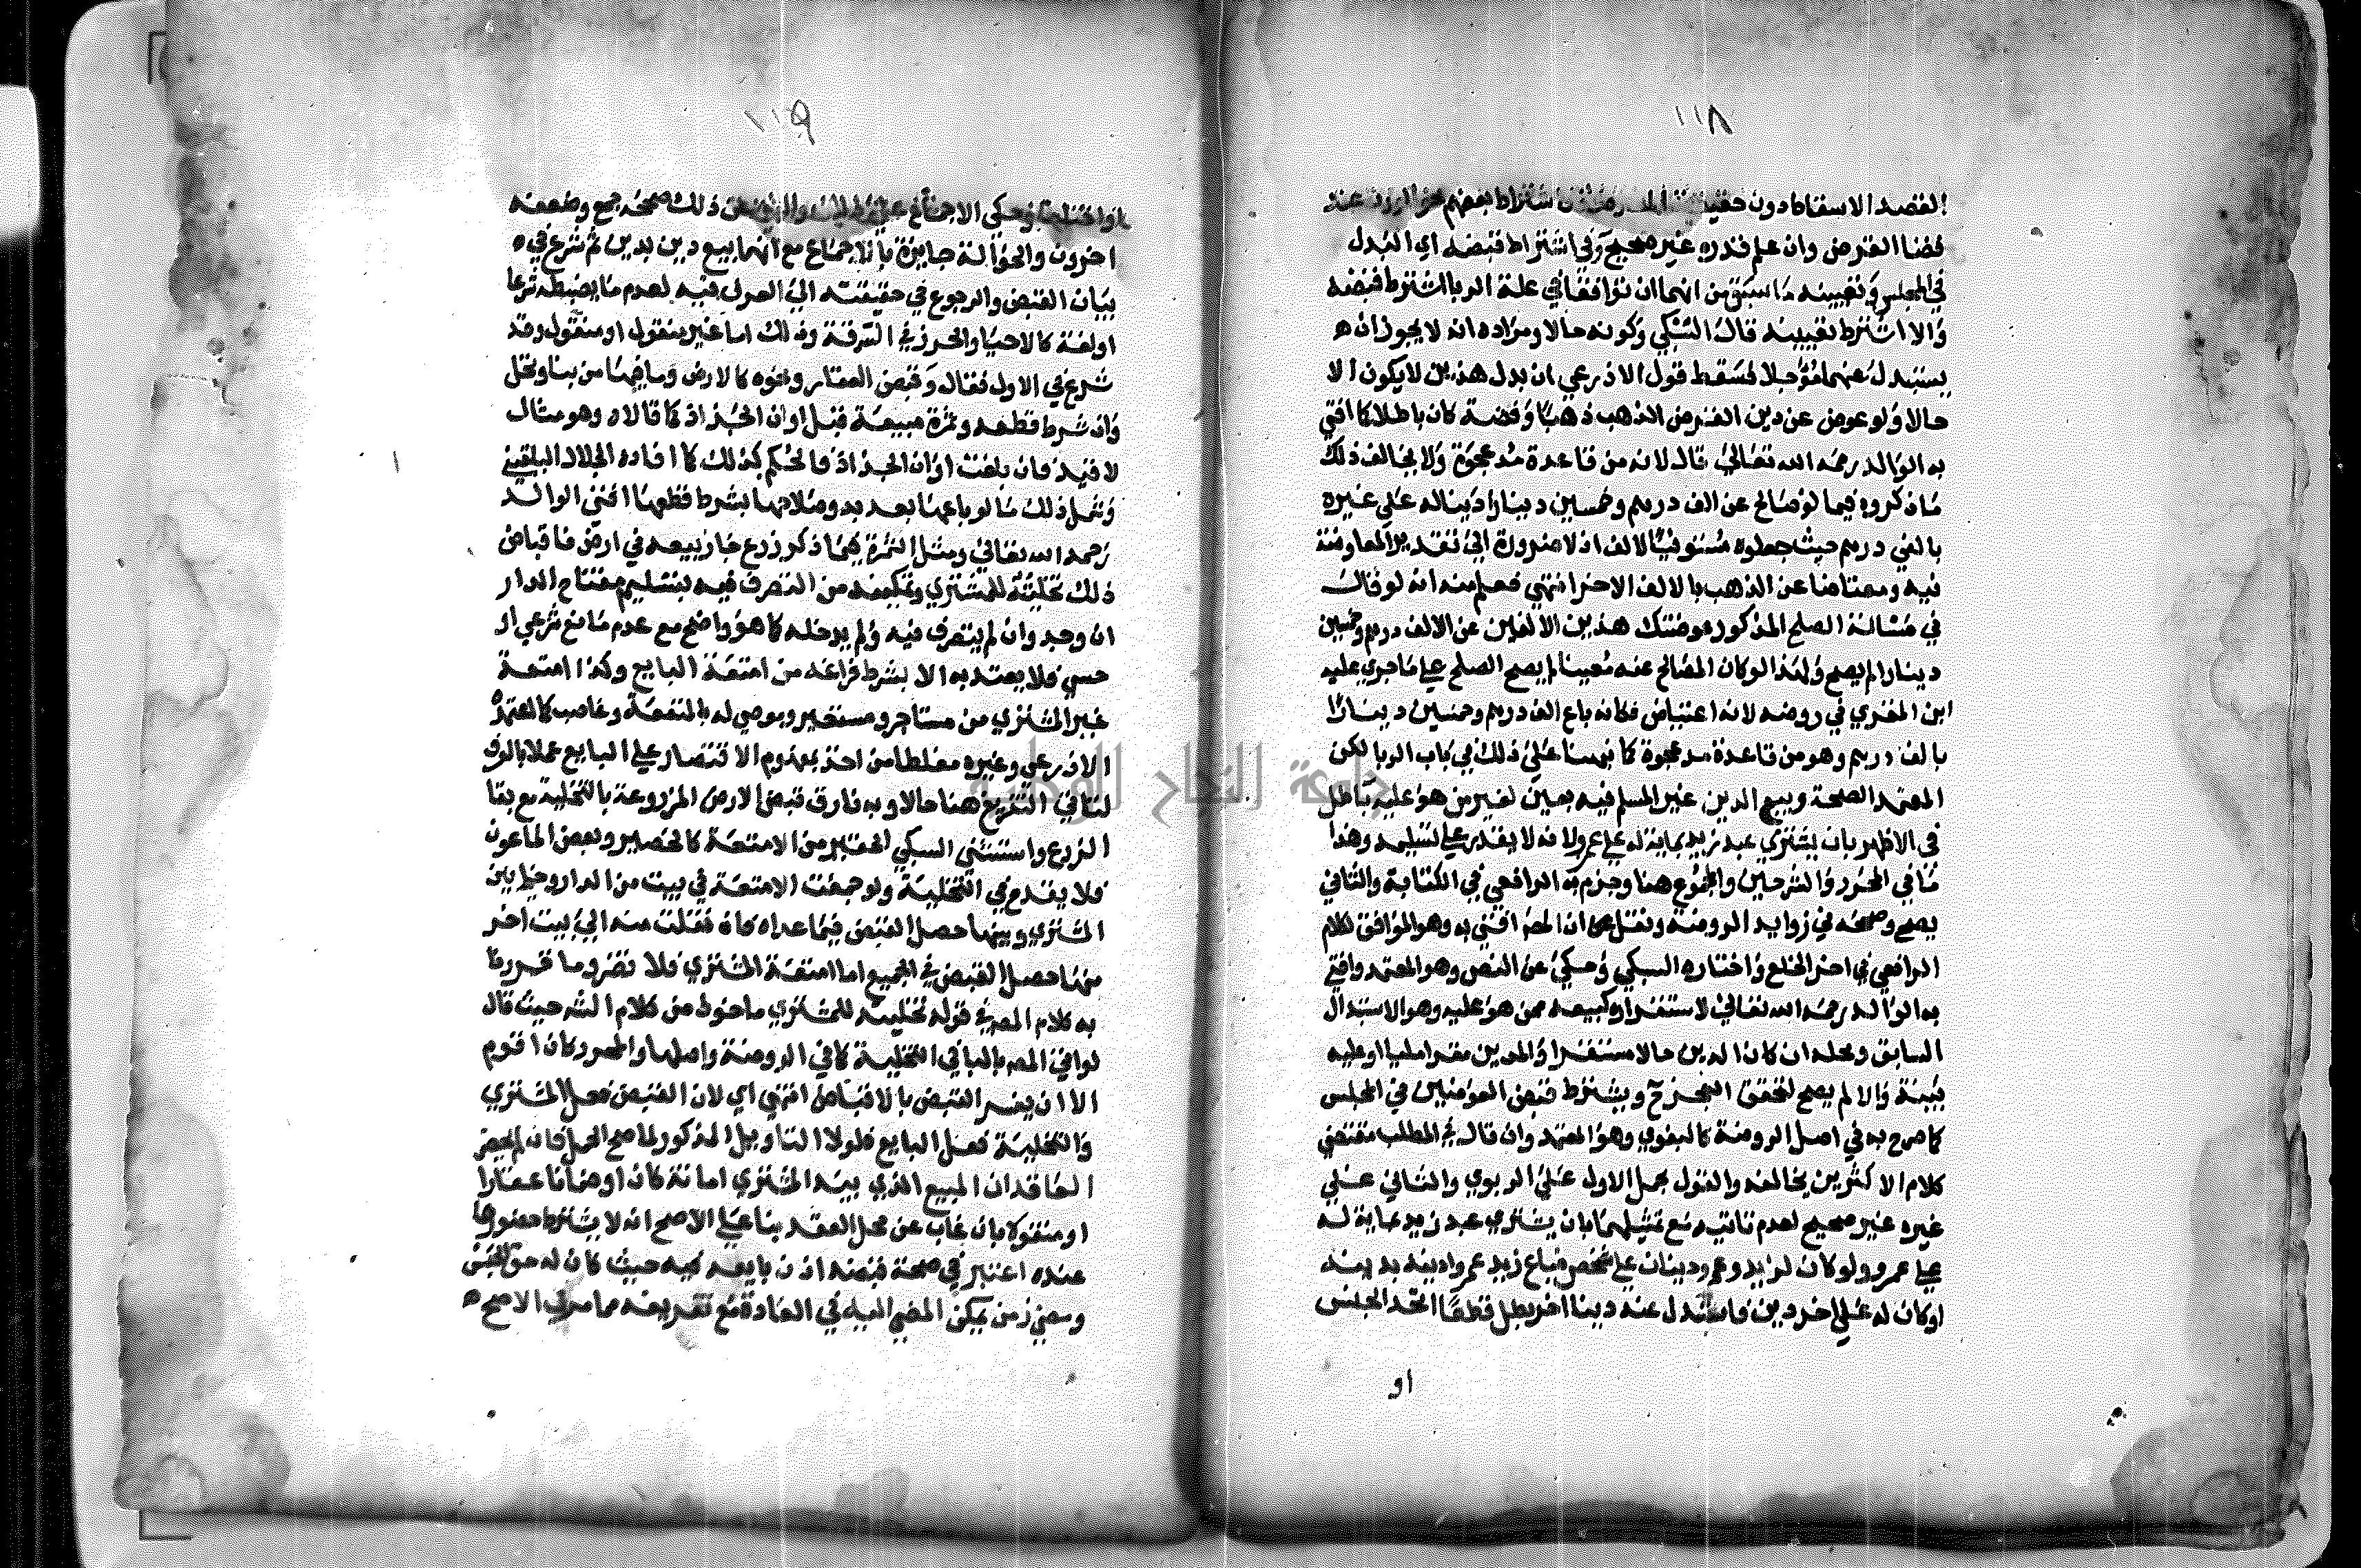 ١١٨
القصد الاسقاط دون حقيقة المعاوضة فاشتراط بعضهم نحو الوزن عند
قضا القرض وان علم قدره غير صحيح وفي اشتراط قبضه اي البدل
في المجلس وتعيينه ما سبق من انهما ان توافقا في علة الربا اشترط قبضه
والا اشترط تعيينه قال السبكي وكونه حالا ومراده انه لا يجوز ان ه
يستبدل عنهما مؤجلا فسقط قول الاذرعي ان بدل هذين لا يكون الا
حالا ولو عوض عن دين القرض الذهب ذهبا وفضة كان باطلا كما افتى
به الوالد رحمه الله تعالى قال لانه من قاعدة مد عجوة ولا يخالف ذلك
ما ذكروه فيما لو صالح عن الف درهم وخمسين دينارا دينا له على غيره
بالفي درهم حيث جعلوه مستوفيا لالف اذ لا ضرورة الى تقدير المعاوضة
فيه ومعتاضا عن الذهب بالالف الاخر انتهى فعلم منه انه لو قال
في مسالة الصلح المذكور عوضتك هذين الالفين عن الالف درهم وخمسين
دينارا لم يصح ولهذا لو كان المصالح عنه معينا لم يصح الصلح على ما جرى عليه
ابن المقري في روضه لانه اعتياض فكانه باع الف درهم وخمسين دينارا
بالف درهم وهو من قاعدة مد عجوة كما نبهنا على ذلك في باب الربا لكن
المعتمد الصحة وبيع الدين غير المسلم فيه بعين لغير من هو عليه باطل
في الاظهر بان يشتري عبد زيد بماية له على عمرو لانه لا يقدر على تسليمه وهذا
ما في المحرر والشرحين والمجموع هنا وجزم به الرافعي في الكتابة والثاني
يصح وصححه في زوايد الروضة ونقل ان المص افتى به وهو الموافق لكلام
الرافعي في اخر الخلع واختاره السبكي وحكي عن النص وهو المعتمد وافتى
به الوالد رحمه الله تعالى لاستقراره كبيعه ممن هو عليه وهو الاستبدال
السابق ومحله ان كان الدين حالا مستقرا والمدين مقرا مليا او عليه
بينة والا لم يصح لتحقق العجز ح ويشترط قبض العوضين في المجلس
كما صرح به في اصل الروضة كالبغوي وهو المعتمد وان قال في المطلب مقتضى
كلام الاكثرين يخالفه والقول بحمل الاول على الربوي والثاني على
غيره غير صحيح لعدم تاتيه مع تمثيلهما بان يشتري عبد زيد بماية له
على عمرو ولو كان لزيد وعمرو دينان على شخص فباع زيد عمرا دينه بدينه
او كان له على اخر دين فاستبدل عنه دينا اخر بطل قطعا اتحد الجنس
او
١١٩
او اختلف وحكي الاجماع على ذلك صححه جمع وضعفه
اخرون والحوالة جايزة بالاجماع مع انها بيع دين بدين ثم شرع في ه
بيان القبض والرجوع في حقيقته الى العرف فيه لعدم ما يضبطه شرعا
او لغة كالاحيا والحرز في السرقة وذلك اما غير منقول او منقول وقد
شرع في الاول فقال وقبض العقار ونحوه كالارض وما فيها من بنا ونخل
وان شرط قطعه وثمرة مبيعة قبل اوان الجذاذ كما قالاه وهو مثال
لا قيد فان بلغت اوان الجذاذ فالحكم كذلك كما افاده الجلال البلقيني
وشمل ذلك ما لو باعها بعد بدو صلاحها بشرط قطعها افتى الوالد
رحمه الله تعالى ومثل الثمرة فيما ذكر زرع جاز بيعه في ارض فاقباض
ذلك تخليته للمشتري وتمكينه من التصرف فيه بتسليم مفتاح الدار
ان وجد وان لم يتصرف فيه ولم يدخله كما هو واضح مع عدم مانع شرعي او
حسي فلا يعتد به الا بشرط فراغه من امتعة البايع وكذا امتعة
غير المشتري من مستاجر ومستعير وموصى له بالمنفعة وغاصب كما اعتمده
الاذرعي وغيره مغلطا من اخذ بمفهوم الاقتصار على البايع عملا بالعرف
لتاتي التفريغ هنا حالا وبه فارق قبض الارض المزروعة بالتخلية مع بقا
الزرع واستثنى السبكي الحقير من الامتعة كالحصير وبعض الماعون
فلا يقدح في التخلية ولو جمعت الامتعة في بيت من الدار وخلى بين
المشتري وبينها حصل القبض فيما عداه فان نقلت منه الى بيت اخر
منها حصل القبض في الجميع اما امتعة المشتري فلا تضر وما قررنا
به كلام المص في قوله تخليته للمشتري ماخوذ من كلام الشر حيث قال
لو اتى المص بالبا في التخلية كما في الروضة واصلها والمحرر كان اقوم
الا ان يفسر القبض بالاقباض انتهى اي لان القبض فعل المشتري
والتخلية فعل البايع فلولا التاويل المذكور لما صح الحمل فان لم يحضر
العاقدان المبيع الذي بيد المشتري امانة كان او ضمانا عقارا
او منقولا بان غاب عن محل العقد بنا على الاصح انه لا يشترط حضورها
عنده اعتبر في صحة قبضه اذن بايعه فيه حيث كان له حق الحبس
ومضي زمن يمكن المضي اليه في العادة مع تفريغه مما مر في الاصح ه
جامعة النجاح الوطنية